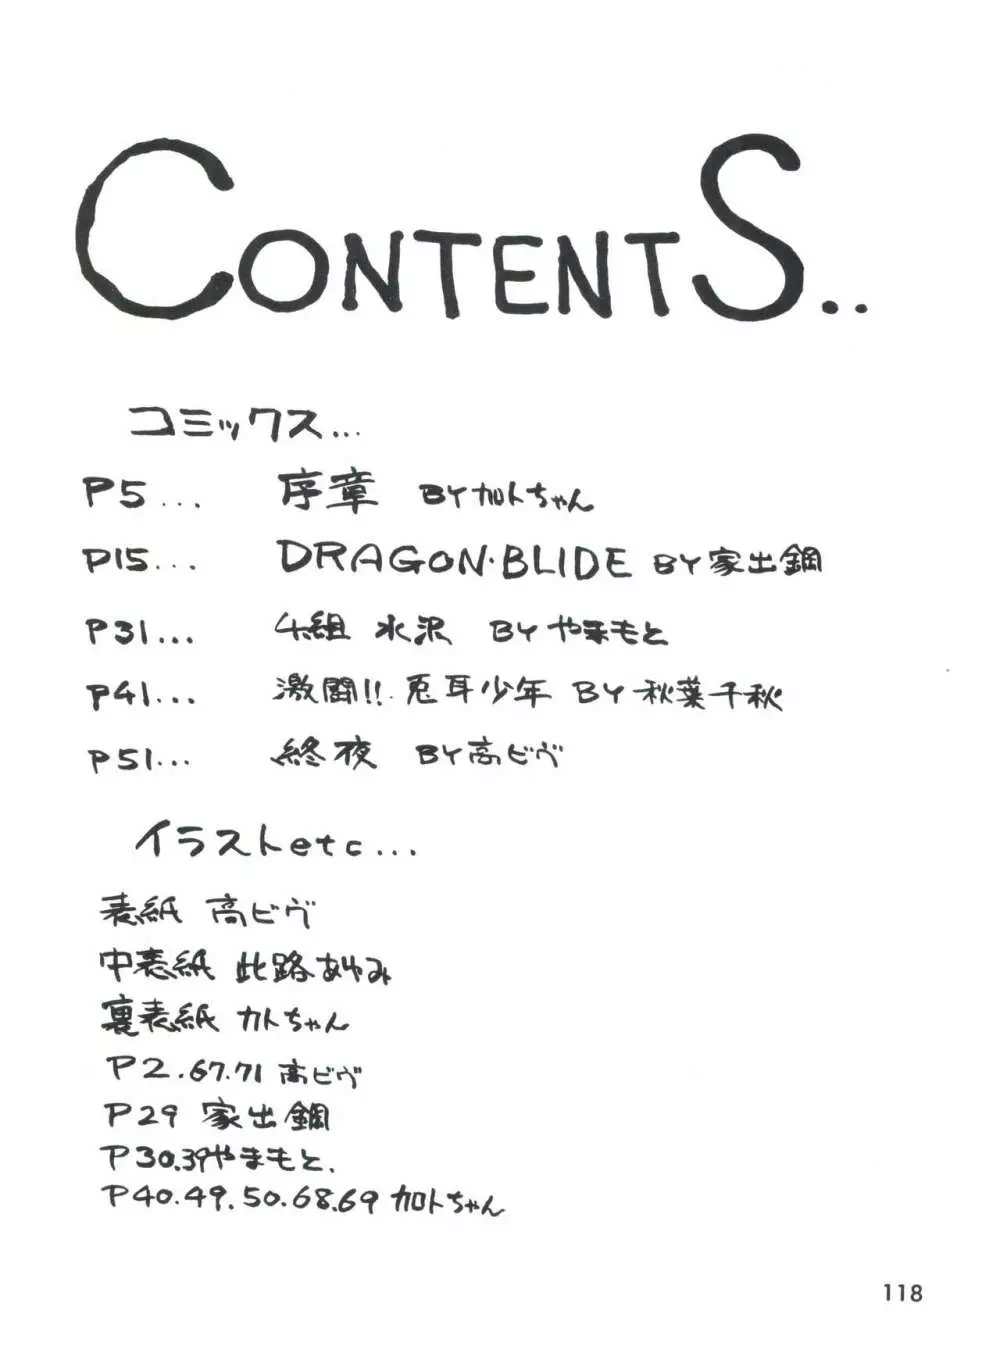 CONTENTS..
コミックス...
P5... 序章 BY カトちゃん
P15... DRAGON・BLIDE BY 家出鋼
P31... 4組 水沢 BY やまもと
P41... 激闘!!兎耳少年 BY 秋葉千秋
P51... 終夜 BY 高ビヴ
イラストetc...
表紙 高ビヴ
中表紙 此路あゆみ
裏表紙 カトちゃん
P2.67.71 高ビヴ
P29 家出鋼
P30.39 やまもと.
P40.49.50.68.69 カトちゃん
118